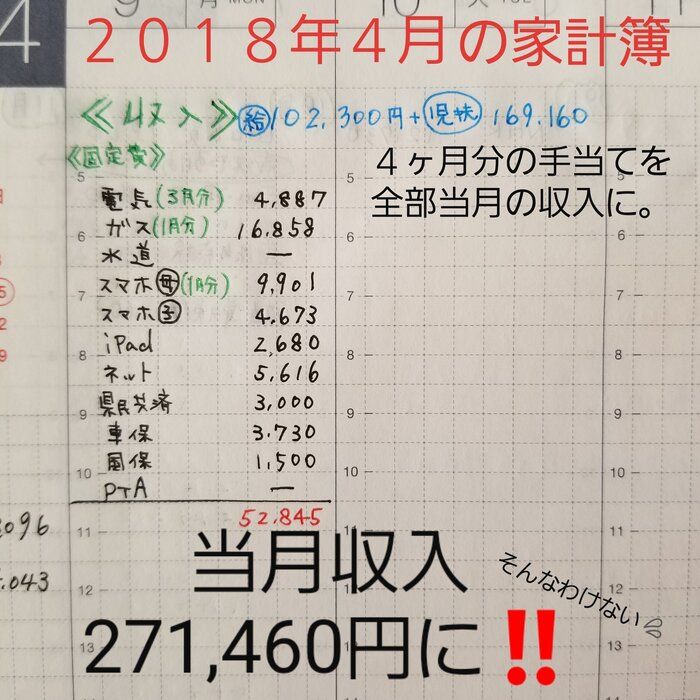 4
9
月 MON
10
火 TUE
11
2018年4月の家計簿
≪収入≫ 給102,300円+児扶169,160
≪固定費≫
4ヶ月分の手当てを
全部当月の収入に。
電気(3月分) 4,887
ガス(1月分) 16,858
水道 ー
スマホ母(1月分) 9,901
スマホ子 4,673
iPad 2,680
ネット 5,616
県民共済 3,000
車保 3,730
風保 1,500
PTA ー
52,845
当月収入
271,460円に‼
そんなわけない
5
6
7
8
9
10
11
12
13
096
.043